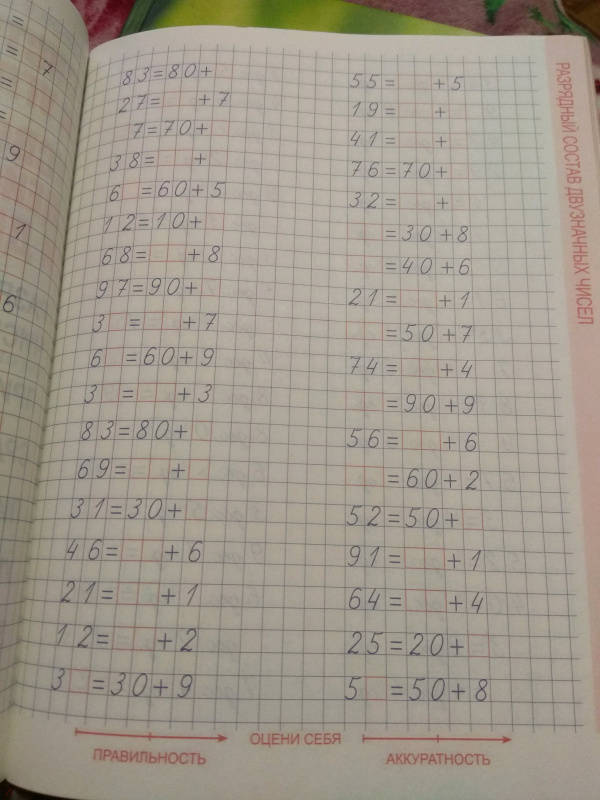 =
= 7
=
=
9
1
6
83=80+
27= +7
7=70+
38= +
6 =60+5
12=10+
68= +8
97=90+
3 = +7
6 =60+9
3 = +3
83=80+
69= +
31=30+
46= +6
21= +1
12= +2
3 =30+9
55= +5
19= +
41= +
76=70+
32= +
=30+8
=40+6
21= +1
=50+7
74= +4
=90+9
56= +6
=60+2
52=50+
91= +1
64= +4
25=20+
5 =50+8
РАЗРЯДНЫЙ СОСТАВ ДВУЗНАЧНЫХ ЧИСЕЛ
ПРАВИЛЬНОСТЬ ОЦЕНИ СЕБЯ АККУРАТНОСТЬ